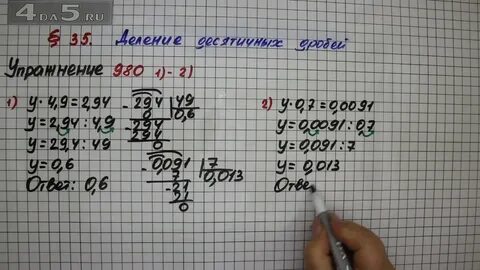 4DA5.RU
§ 35. Деление десятичных дробей
Упражнение 980 1)-2)
1) y·4,9=2,94
y=2,94:4,9
y=29,4:49
y=0,6
Ответ: 0,6
- 29,4 | 49
0 | 0,6
- 294
294
0
- 0,091 | 7
7 | 0,013
- 21
21
0
2) y·0,7=0,0091
y=0,0091:0,7
y=0,091:7
y=0,013
Отве